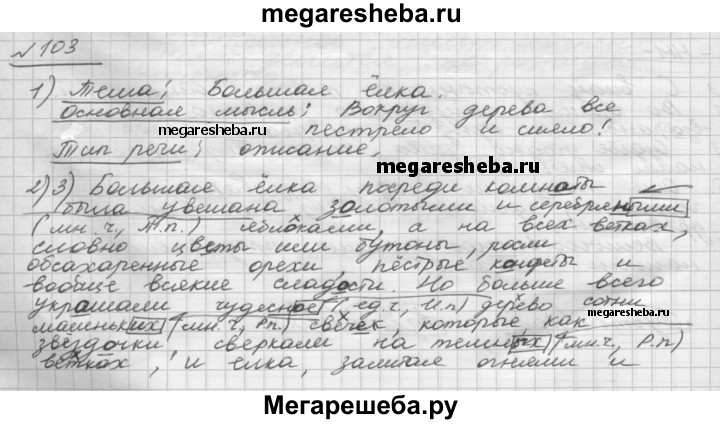 megaresheba.ru
№ 103
1) Тема: Большая ёлка.
Основная мысль: Вокруг дерева все
megaresheba.ru пестрело и сияло!
Тип речи: описание.
megaresheba.ru
2) 3) Большая ёлка посреди комнаты
была увешана золотыми и серебряными
(мн.ч., Т.п.) яблоками, а на всех ветках,
словно цветы или бутоны, росли
обсахаренные орехи, пёстрые конфеты и
вообще всякие сладости. Но больше всего
украшали чудесное (ед.ч., И.п) дерево сотни
маленьких (мн.ч., Р.п.) свечек, которые, как
звёздочки сверкали на темных (мн.ч., Р.п)
ветках, и ёлка, залитая огнями и
Мегарешеба.ру